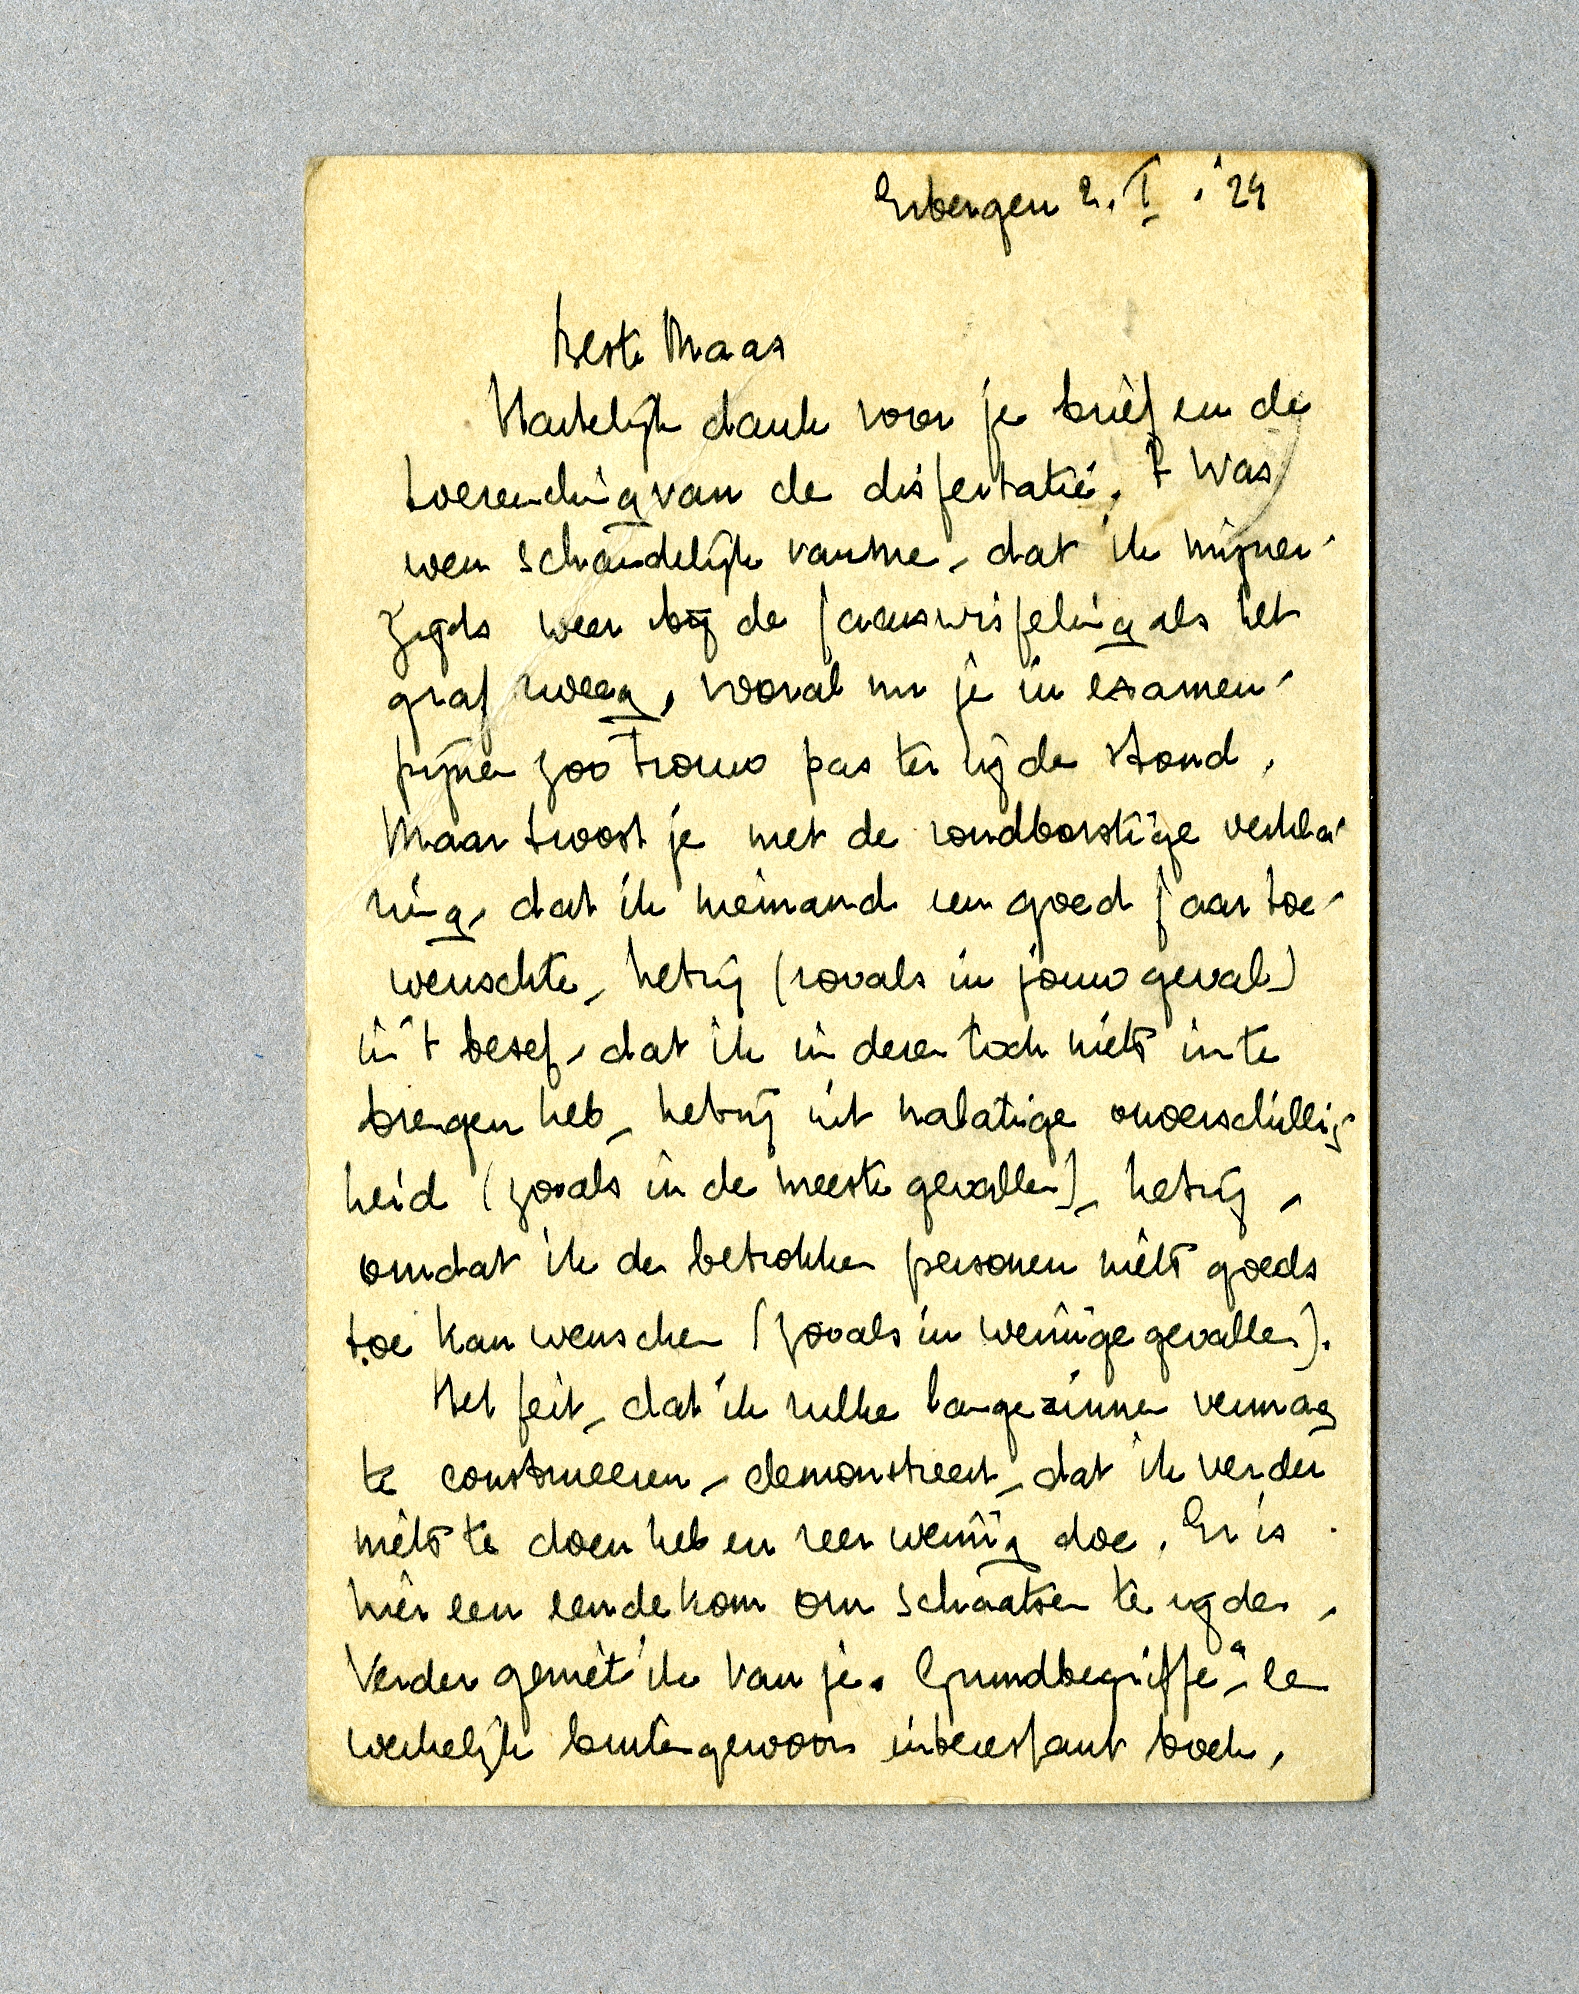 Erbergen 2. I. '24
Beste Maas
Hartelijk dank voor je brief en de
toezending van de dissertatie. 't Was
weer schandelijk van me, dat ik mijner-
zijds weer bij de jaarswisseling als het
graf zweeg, vooral nu je in examen-
pijnen zoo trouw pas ter zijde stond.
Maar troost je met de rondborstige verkla-
ring, dat ik niemand een goed jaar toe-
wenschte, hetzij (zooals in jouw geval)
in 't besef, dat ik in dezen toch niets in te
brengen heb, hetzij uit nalatige onverschillig-
heid (zooals in de meeste gevallen), hetzij,
omdat ik de betrokken personen niets goeds
toe kan wenschen (zooals in weinige gevallen).
Het feit, dat ik zulke lange zinnen vermag
te construeeren, demonstreert, dat ik verder
niets te doen heb en zeer weinig doe. Er is
hier een eendekom om schaatsen te rijden,
Verder geniet ik van je „Grundbegriffe", een
werkelijk buitengewoon interessant boek,